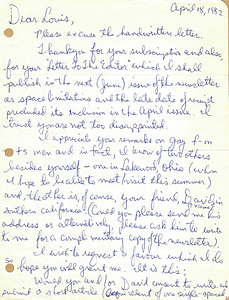 April 18, 1987
Dear Louis,
Please excuse the handwritten letter.
Thank you for your subscription and also
for your "Letter to the Editor" which I shall
publish in the next (June) issue of the newsletter
as space limitations and the late date of receipt
precluded its inclusion in the April issue. I
trust you are not too disappointed.
I appreciate your remarks on gay f-m
ts men and in fact, I know of two others
besides yourself - one in Lakewood, Ohio (whom
I hope to be able to meet/visit this summer)
and, the other is, of course, your friend, David in
southern California! (Could you please send me his
address or alternatively, please ask him to write
to me for a complimentary copy of the newsletter).
I wish to request a favour which I do
so hope you will grant me. It is this:
Would you and/or David consent to write and
submit a short article